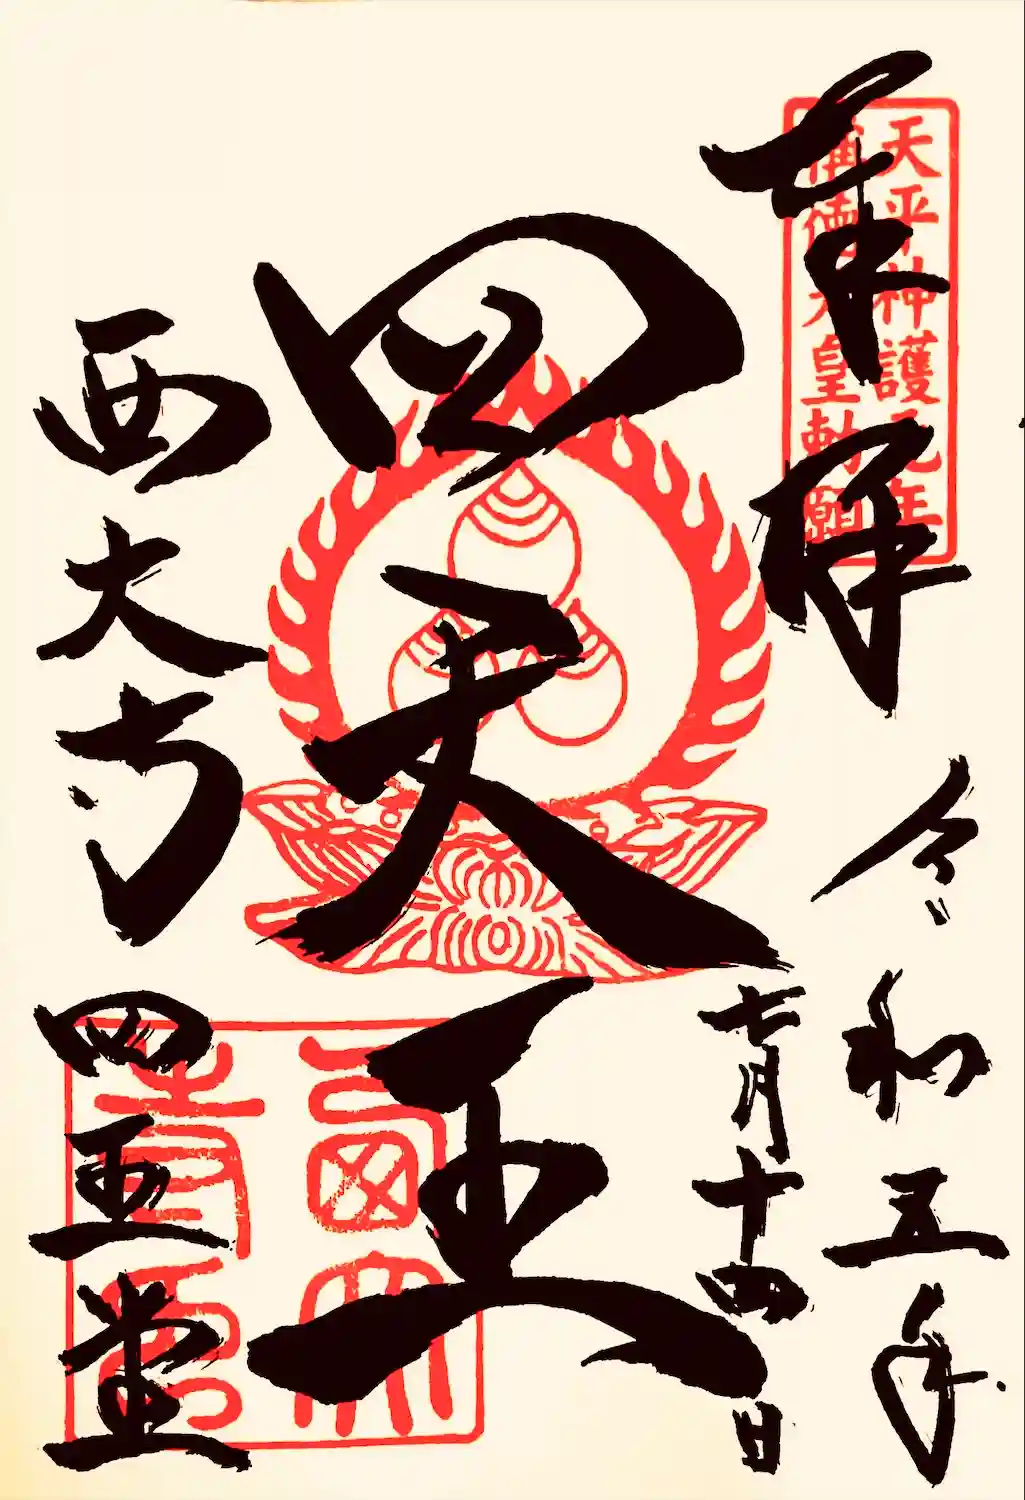 奉拝
天平神護元年
稱德天皇勅願
令和五年
七月十四日
四天王
西大寺
四王堂
西大寺印